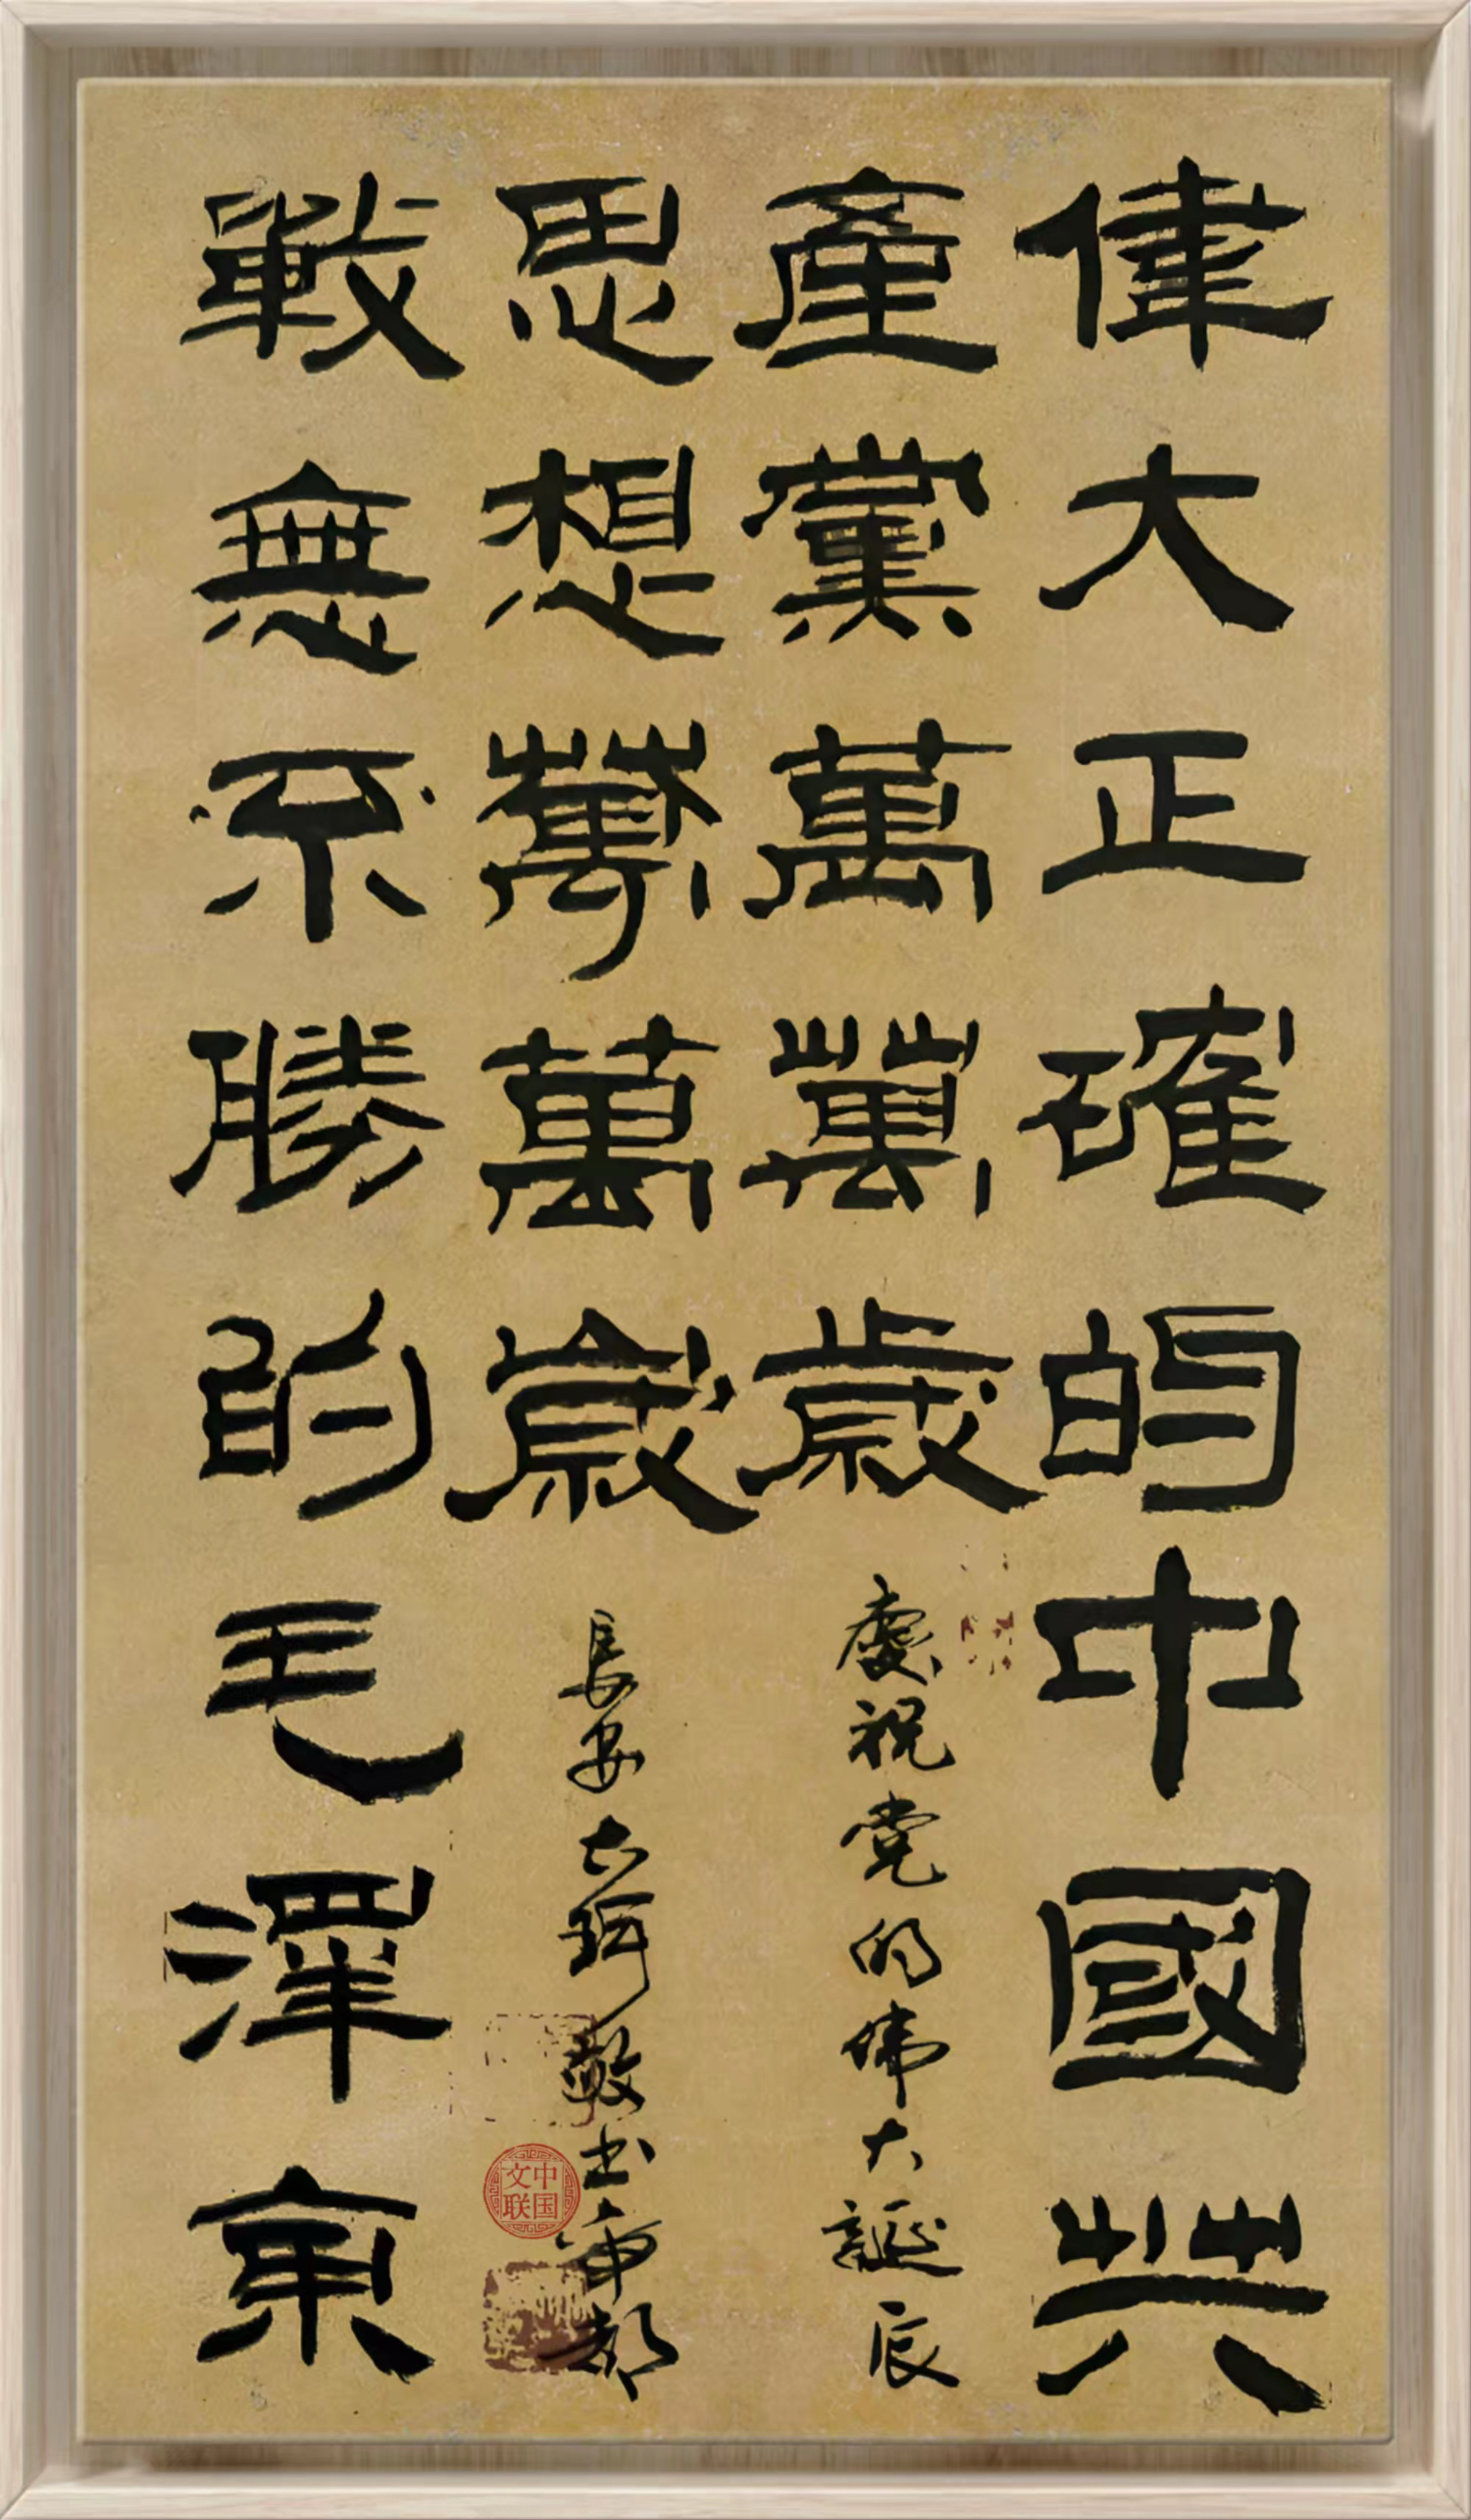 偉大正確的中國共
產黨萬萬歲
戰無不勝的毛澤東
思想萬萬歲
慶祝党的偉大誕辰
長安珂敬书都
中国文联